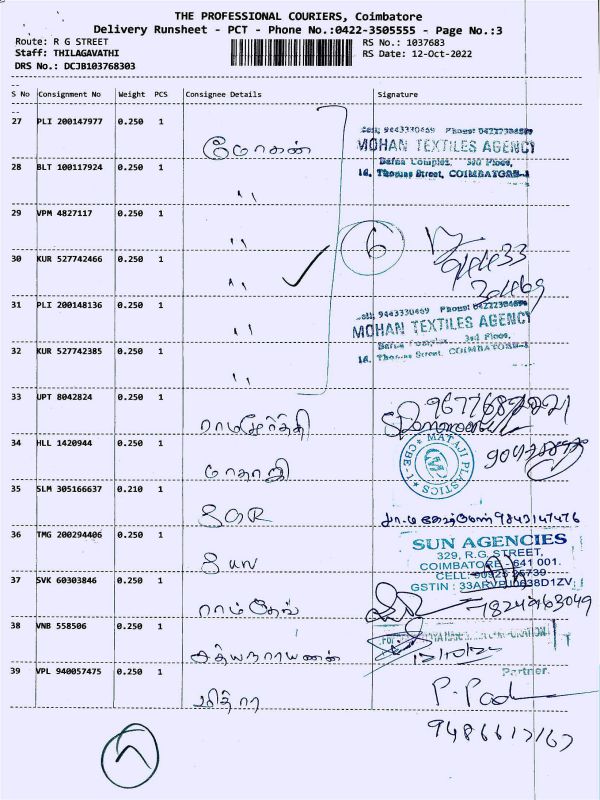 THE PROFESSIONAL COURIERS, Coimbatore
Delivery Runsheet - PCT - Phone No.:0422-3505555 - Page No.:3
Route: R G STREET
RS No.: 1037683
Staff: THILAGAVATHI
RS Date: 12-Oct-2022
DRS No.: DCJB103768303
S No Consignment No Weight PCS Consignee Details Signature
27 PLI 200147977 0.250 1 மோகன்
Cell: 9443330469
MOHAN TEXTILES AGENCY
Bafna Complex, 3rd Floor,
16, Thomas Street, COIMBATORE-1
28 BLT 100117924 0.250 1 ''
29 VPM 4827117 0.250 1 ''
6
30 KUR 527742466 0.250 1 ''
94433
30469
31 PLI 200148136 0.250 1 ''
Cell: 9443330469
MOHAN TEXTILES AGENCY
Bafna Complex 3rd Floor,
16, Thomas Street, COIMBATORE-1
32 KUR 527742385 0.250 1 ''
33 UPT 8042824 0.250 1 ராமமூர்த்தி
34 HLL 1420944 0.250 1 மாதாஜி
MATAJI PLASTICS CBE-1
35 SLM 305166637 0.210 1 SGR
9843147476
36 TMG 200294406 0.250 1 Sun
SUN AGENCIES
329, R.G. STREET,
COIMBATORE - 641 001.
37 SVK 60303846 0.250 1 ராம்தேவ்
38 VNB 558506 0.250 1 சத்யநாராயணன்
12/10/22
Partner.
39 VPL 940057475 0.250 1 மித்ரா